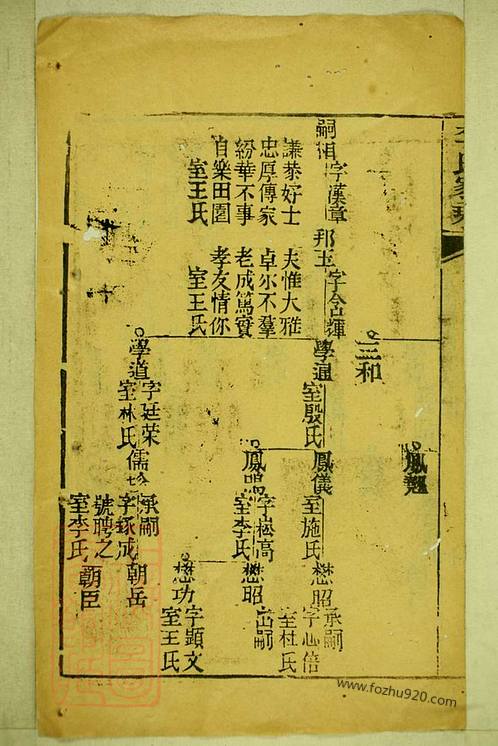 鳳翔
三和
嗣祖字漢章
謙恭好士
忠厚傳家
紛華不事
自樂田園
室王氏
邦玉字含輝
夫惟大雅
卓尔不羣
老成篤實
孝友情你
室王氏
學通
室殷氏
學道字廷荣
室林氏
鳳儀
室施氏
鳳鳴字崧高
室李氏
儒珍承嗣
字球成
號聘之
室李氏
懋昭承嗣
字心倍
室杜氏
懋昭出嗣
懋功字顯文
室王氏
朝岳
朝臣
www.fozhu920.com